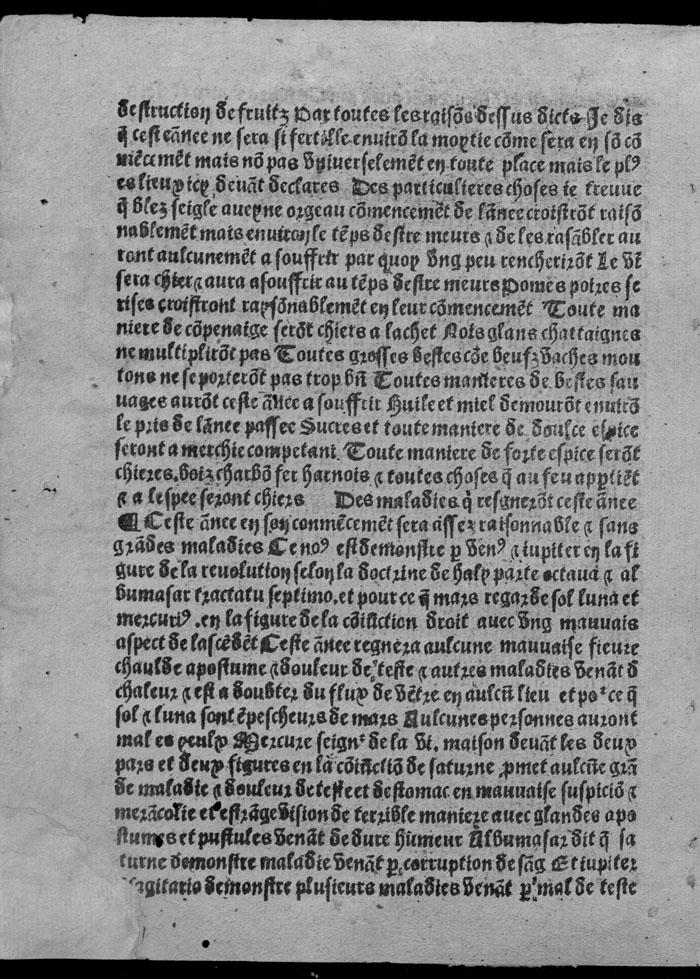 destruction de fruitz Par toutes les raisõs dessus dictz Je dis
q̃ ceste ãnee ne sera si fertille enuirõ la moytie cõme sera en sõ cõ
mẽcemẽt mais nõ pas vniuerselemẽt en toute place mais le plꝰ
es lieux icy deuãt declares Des particulieres choses ie treuue
q̃ blez seigle aueyne orge au cõmencemẽt de lãnee croistrõt raisõ
nablemẽt mais enuiron le tẽps destre meurs ⁊ de les rasẽbler au
ront aulcunemẽt a souffrir par quoy vng peu rencherirõt Le vĩ
sera chier ⁊ aura a souffrir au tẽps destre meurs Pomes poires se
rises croistront raysõnablemẽt en leur cõmencemẽt Toute ma
niere de cõpenaige serõt chiers a lachet Nois glans chattaignes
ne multiplirõt pas Toutes grosses bestes cõe beufz vaches mou
tons ne se porterõt pas trop bñ Toutes manieres de bestes sau
uages aurõt ceste ãnee a souffrir Huile et miel demourõt enuirõ
le pris de lãnee passee Sucres et toute maniere de doulce espice
seront a merchie competant Toute maniere de forte espice serõt
chieres. boiz charbõ fer harnois ⁊ toutes choses q̃ au feu appliẽt
⁊ a lespee seront chiers Des maladies q̃ resgnerõt ceste ãnee
¶ Ceste ãnee en son conmẽcemẽt sera assez raisonnable ⁊ sans
grãdes maladies Ce noꝰ est demonstre p̱ venꝰ ⁊ iupiter en la fi
gure de la reuolution selon la doctrine de haly parte octaua ⁊ al
bumasar tractatu septimo. et pour ce q̃ mars regarde sol luna et
mercuriꝰ .en la figure de la cõiũction droit auec vng mauuais
aspect de lascẽdẽt Ceste ãnee regnera aulcune mauuaise fieure
chaulde apostume ⁊ douleur de teste ⁊ autres maladies venãt d̃
chaleur ⁊ est a doubter du flux de vẽtre en aulcũ lieu et poᵘʳ ce q̃
sol ⁊ luna sont ẽpescheurs de mars Aulcunes personnes auront
mal es yeulx Mercure seignʳ de la vi. maison deuãt les deux
pars et deux figures en la cõiũctiõ de saturne p̱met aulcũe grã
de maladie ⁊ douleur de teste et destomac en mauuaise suspiciõ ⁊
merãcolie et estrãge vision de terrible maniere auec glandes apo
stumes et pustules venãt de dure humeur Albumasar dit q̃ sa
turne demonstre maladie venãt p̱ corruption de sãg Et iupiter
sagitario demonstre plusieurs maladies venãt p̱ mal de teste